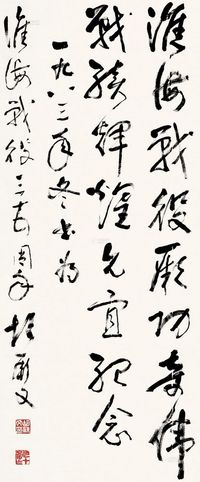 淮海戰役厥功奇偉
戰績輝煌允宜紀念
一九八三年冬书为
淮海戰役三十五周年